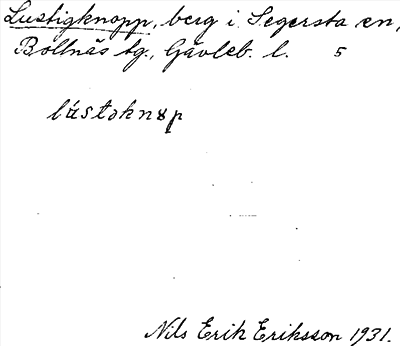 Lustigknopp, berg i Segersta sn,
Bollnäs tg., Gävleb. l. 5
lústoknȣp
Nils Erik Eriksson 1931.